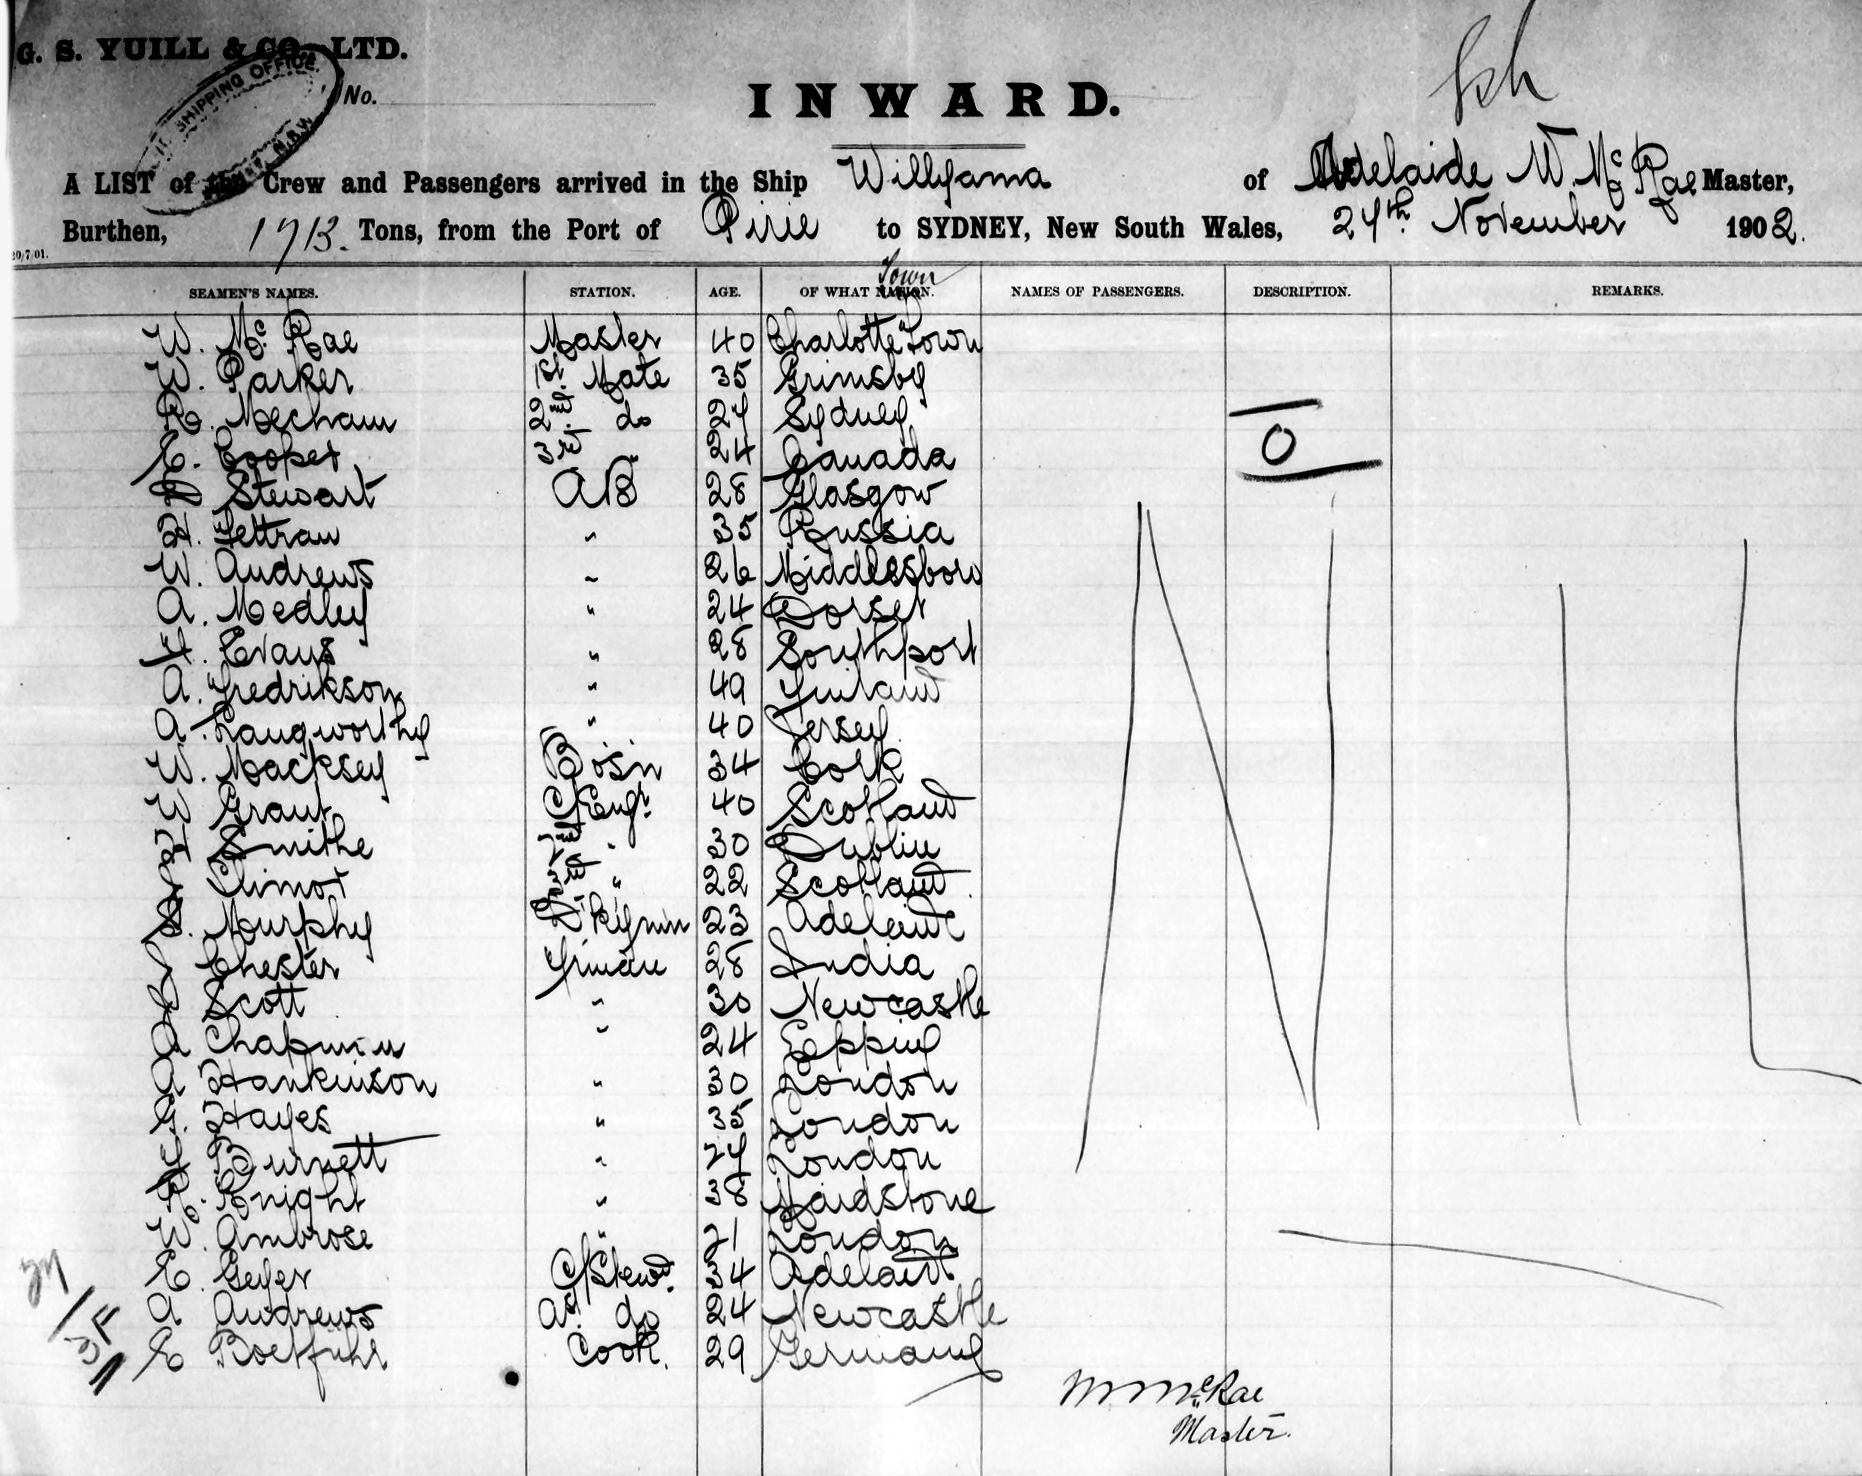 G. S. YUILL & CO. LTD.
SHIPPING OFFICE N.S.W.
No.
INWARD.
A LIST of the Crew and Passengers arrived in the Ship Willyama of Adelaide W. McRae Master,
Burthen, 1713. Tons, from the Port of Pirie to SYDNEY, New South Wales, 24th. November 1902.
20/7/01.
Town
SEAMEN'S NAMES. STATION. AGE. OF WHAT NATION. NAMES OF PASSENGERS. DESCRIPTION. REMARKS.
W. Mc Rae Master 40 Charlotte Town
W. Parker 1st. Mate 35 Grimsby
R. Mecham 2nd. do 24 Sydney
O
E. Cooper 3rd " 24 Canada
Stewart AB 28 Glasgow
H. Pettran " 35 Russia
W. Andrews " 26 Middlesboro
A. Medley " 24 Dorset
Evans " 28 Southport
A. Fredrikson " 49 Finland
A. Langworthy " 40 Jersey
W. Macksey Bosn 34 Cork
W Grant C/Engr. 40 Scotland
Smithe 2nd " 30 Dublin
Climox 3rd " 22 Scotland
S. Murphy D'kyman 23 Adelaide
Chester Fireman 28 India
J Scott " 30 Newcastle
A Chapman " 24 Epping
A Hankinson " 30 London
Hayes " 35 London
Burnett " 24 London
R. Knight " 38 Maidstone
W. Ambrose " 21 London
E. Geyer C/Stewd. 34 Adelaide
A Andrews As. do 24 Newcastle
E Boetfuhr Cook. 29 Germany
NIL
W McRae
Master.